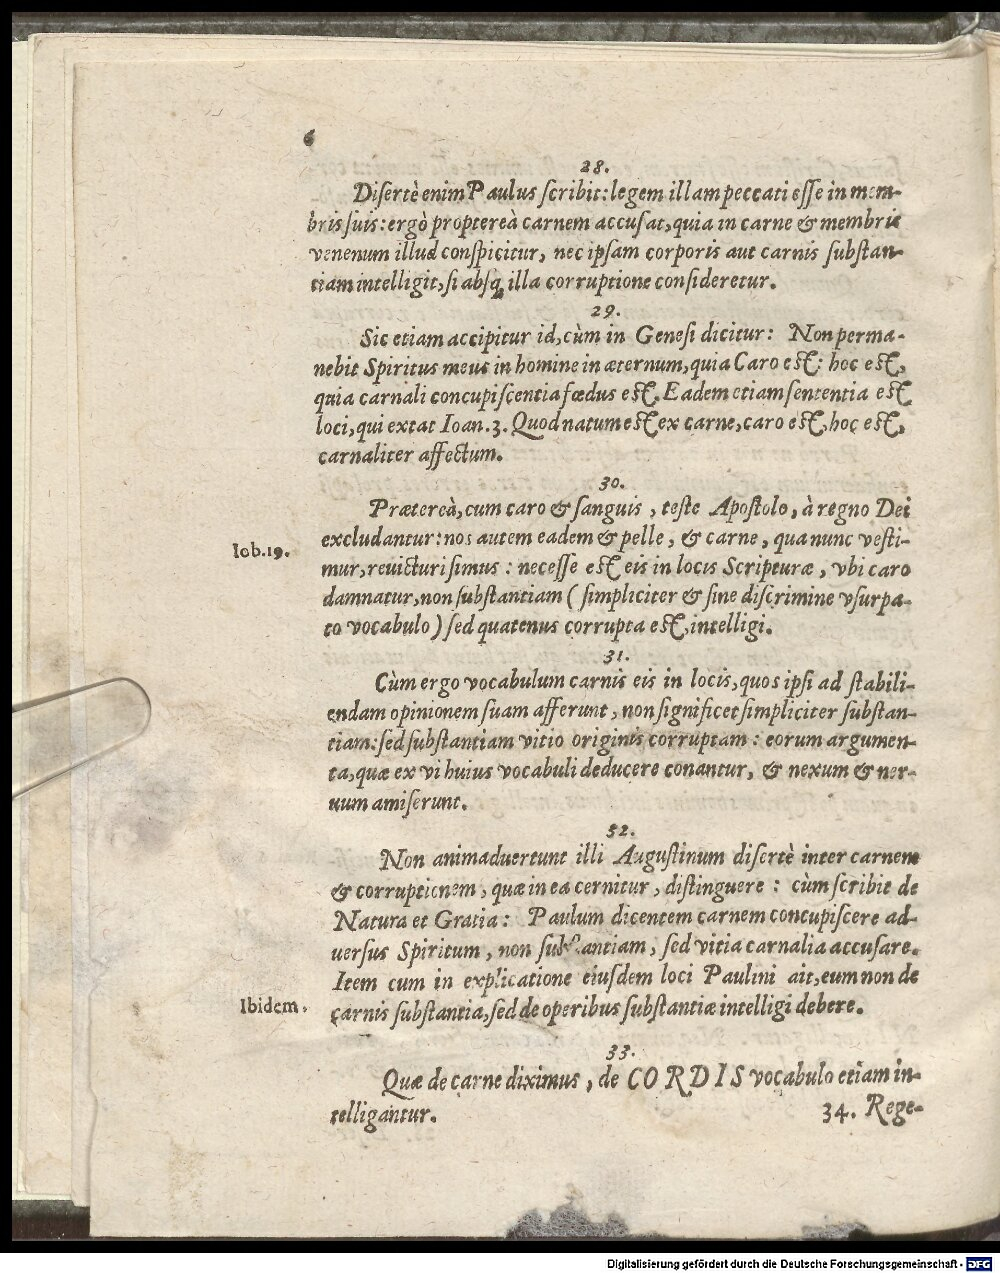 6
28.
Disertè enim Paulus scribit: legem illam peccati esse in mem-
bris suis: ergò proptereà carnem accusat, quia in carne & membris
venenum illud conspicitur, nec ipsam corporis aut carnis substan-
tiam intelligit, si absq, illa corruptione consideretur.
29.
Sic etiam accipitur id, cùm in Genesi dicitur: Non perma-
nebit Spiritus meus in homine in æternum, quia Caro est: hoc est,
quia carnali concupiscentia fœdus est. Eadem etiam sententia est
loci, qui extat Ioan. 3. Quod natum est ex carne, caro est, hoc est,
carnaliter affectum.
30.
Prætereà, cum caro & sanguis, teste Apostolo, à regno Dei
excludantur: nos autem eadem & pelle, & carne, qua nunc vesti-
Iob. 19.
mur, reuicturi simus: necesse est eis in locis Scripturæ, vbi caro
damnatur, non substantiam (simpliciter & sine discrimine vsurpa-
to vocabulo) sed quatenus corrupta est, intelligi.
31.
Cùm ergo vocabulum carnis eis in locis, quos ipsi ad stabili-
endam opinionem suam afferunt, non significet simpliciter substan-
tiam: sed substantiam vitio originis corruptam: eorum argumen-
ta, quæ ex vi huius vocabuli deducere conantur, & nexum & ner-
uum amiserunt.
32.
Non animaduertunt illi Augustinum disertè inter carnem
& corruptionem, quæ in ea cernitur, distinguere: cùm scribit de
Natura et Gratia: Paulum dicentem carnem concupiscere ad-
versus Spiritum, non substantiam, sed vitia carnalia accusare.
Item cum in explicatione eiusdem loci Paulini ait, eum non de
Ibidem.
carnis substantia, sed de operibus substantiæ intelligi debere.
33.
Quæ de carne diximus, de CORDIS vocabulo etiam in-
telligantur.
34. Rege-
Digitalisierung gefördert durch die Deutsche Forschungsgemeinschaft - DFG